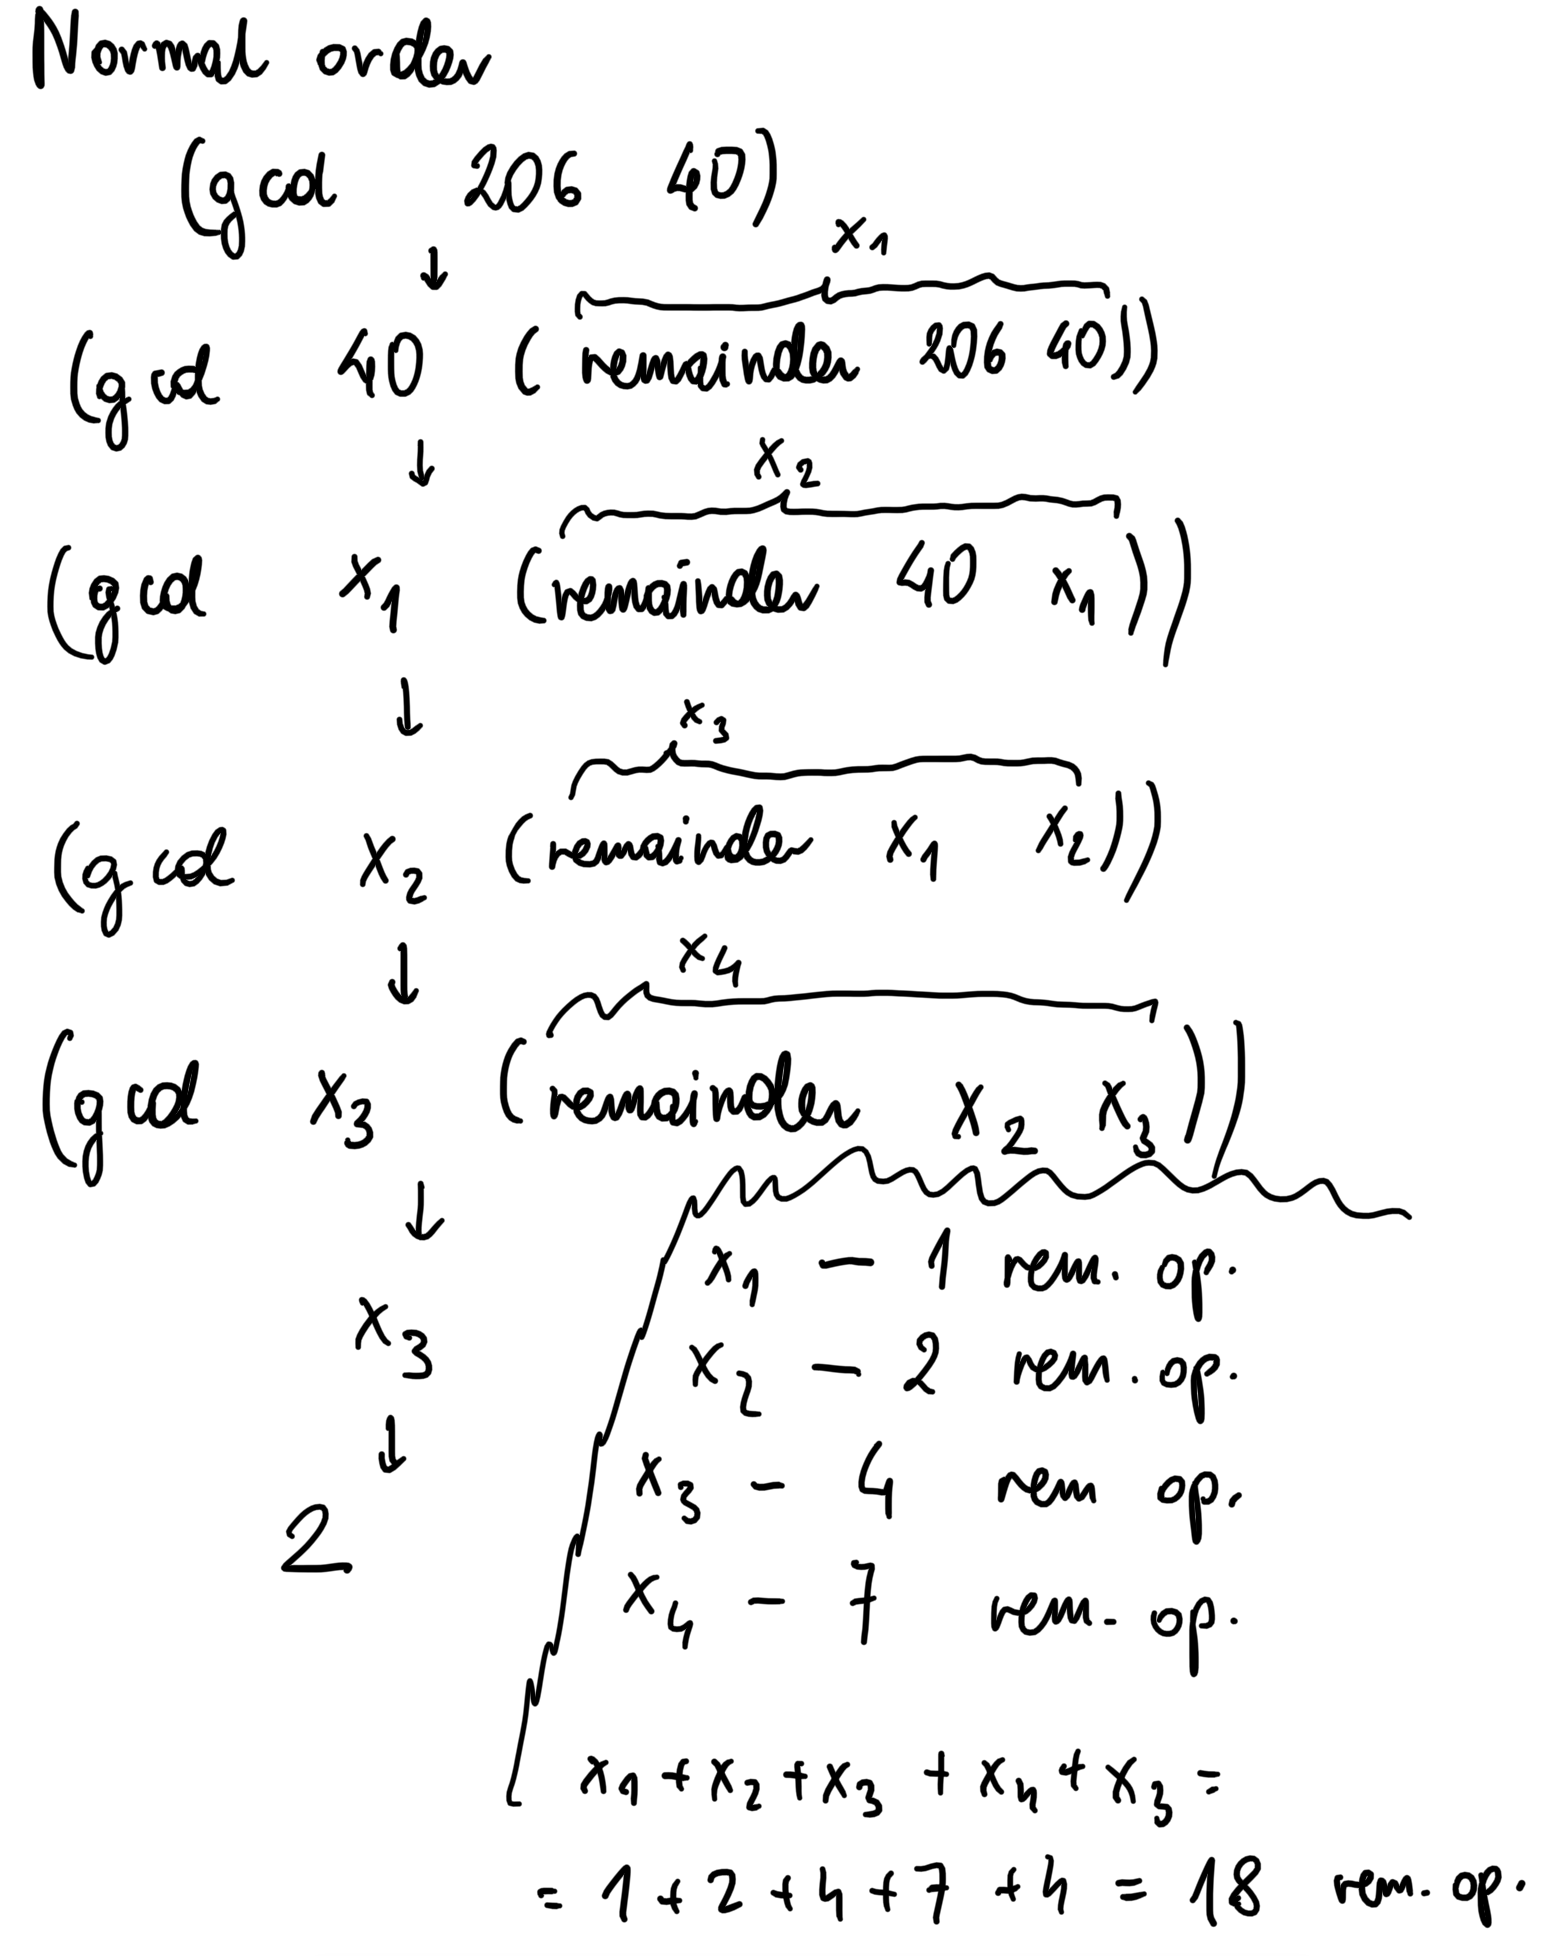 Normal order
(gcd 206 40)
↓
x₁
(gcd 40 (remainder 206 40))
↓
x₂
(gcd x₁ (remainder 40 x₁))
↓
x₃
(gcd x₂ (remainder x₁ x₂))
↓
x₄
(gcd x₃ (remainder x₂ x₃))
↓
x₃
↓
2
x₁ – 1 rem. op.
x₂ – 2 rem. op.
x₃ – 4 rem op.
x₄ – 7 rem. op.
x₁ + x₂ + x₃ + x₄ + x₃ =
= 1 + 2 + 4 + 7 + 4 = 18 rem. op.